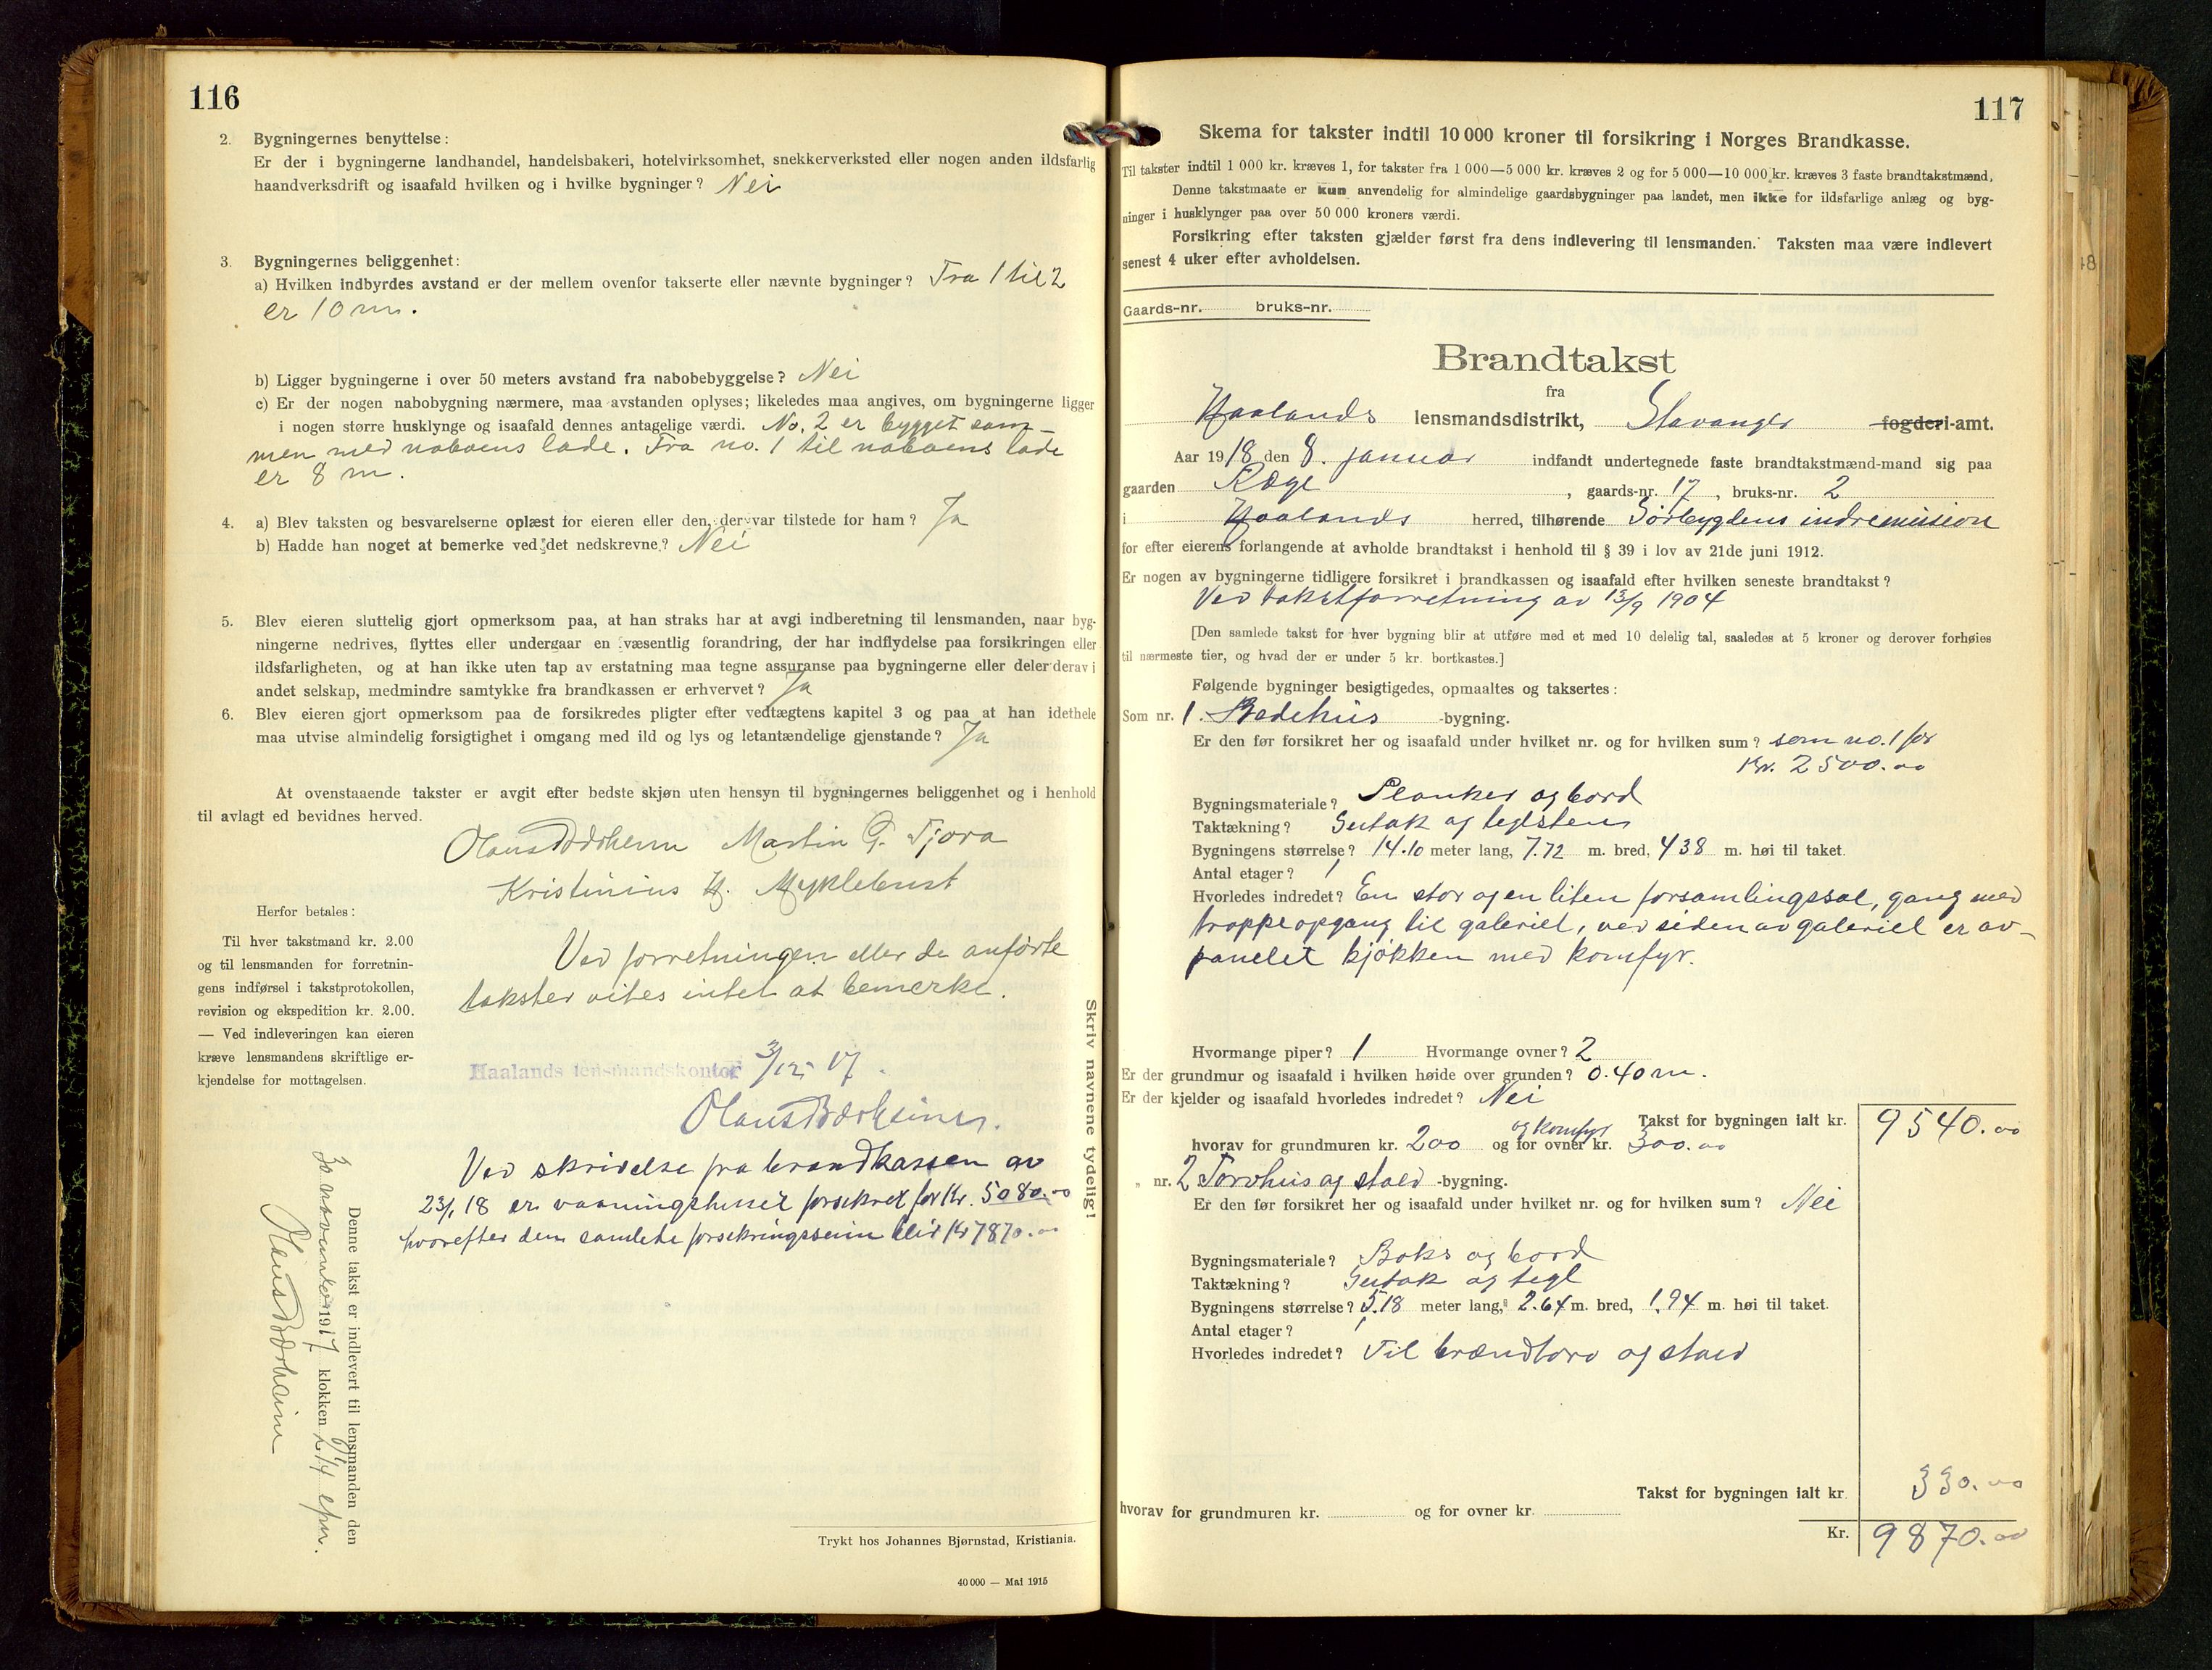 116
2. Bygningernes benyttelse:
Er der i bygningerne landhandel, handelsbakeri, hotelvirksomhet, snekkerverksted eller nogen anden ildsfarlig
haandverksdrift og isaafald hvilken og i hvilke bygninger? Nei
3. Bygningernes beliggenhet:
a) Hvilken indbyrdes avstand er der mellem ovenfor takserte eller nævnte bygninger? Fra 1 til 2
er 10 m.
b) Ligger bygningerne i over 50 meters avstand fra nabobebyggelse? Nei
c) Er der nogen nabobygning nærmere, maa avstanden oplyses; likeledes maa angives, om bygningerne ligger
i nogen større husklynge og isaafald dennes antagelige værdi. No. 2 er bygget sam-
men med naboens lade. Fra no. 1 til naboens lade
er 8 m.
4. a) Blev taksten og besvarelserne oplæst for eieren eller den, der var tilstede for ham? Ja
b) Hadde han noget at bemerke ved det nedskrevne? Nei
5. Blev eieren sluttelig gjort opmerksom paa, at han straks har at avgi indberetning til lensmanden, naar byg-
ningerne nedrives, flyttes eller undergaar en væsentlig forandring, der har indflydelse paa forsikringen eller
ildsfarligheten, og at han ikke uten tap av erstatning maa tegne assuranse paa bygningerne eller deler derav i
andet selskap, medmindre samtykke fra brandkassen er erhvervet? Ja
6. Blev eieren gjort opmerksom paa de forsikredes pligter efter vedtægtens kapitel 3 og paa at han idethele
maa utvise almindelig forsigtighet i omgang med ild og lys og letantændelige gjenstande? Ja
At ovenstaaende takster er avgit efter bedste skjøn uten hensyn til bygningernes beliggenhet og i henhold
til avlagt ed bevidnes herved.
Olaus Bærheim Martin G. Tjora
Kristinius H. Myklebust
Herfor betales:
Til hver takstmand kr. 2.00
og til lensmanden for forretnin-
gens indførsel i takstprotokollen,
revision og ekspedition kr. 2.00.
— Ved indleveringen kan eieren
kræve lensmandens skriftlige er-
kjendelse for mottagelsen.
Ved forretningen eller de anførte
takster vites intet at bemerke.
Haalands lensmandskontor 3/12 17.
Olaus Bærheim.
Ved skrivelse fra brandkassen av
23/1 18 er vaaningshuset forsikret for Kr. 5080.00
hvorefter den samlede forsikringssum blir Kr 7870.00
Denne takst er indlevert til lensmanden den
30 november 1917 klokken 2 1/4 epm.
Olaus Bærheim
Skriv navnene tydelig!
Trykt hos Johannes Bjørnstad, Kristiania.
40000 — Mai 1915
117
Skema for takster indtil 10 000 kroner til forsikring i Norges Brandkasse.
Til takster indtil 1 000 kr. kræves 1, for takster fra 1 000—5 000 kr. kræves 2 og for 5 000—10 000 kr. kræves 3 faste brandtakstmænd.
Denne takstmaate er kun anvendelig for almindelige gaardsbygninger paa landet, men ikke for ildsfarlige anlæg og byg-
ninger i husklynger paa over 50 000 kroners værdi.
Forsikring efter taksten gjælder først fra dens indlevering til lensmanden. Taksten maa være indlevert
senest 4 uker efter avholdelsen.
Gaards-nr. bruks-nr.
Brandtakst
fra
Haalands lensmandsdistrikt, Stavanger fogderi-amt.
Aar 1918 den 8. januar indfandt undertegnede faste brandtakstmænd-mand sig paa
gaarden Ræge, gaards-nr. 17, bruks-nr. 2
i Haalands herred, tilhørende Sørbygdens indremission
for efter eierens forlangende at avholde brandtakst i henhold til § 39 i lov av 21de juni 1912.
Er nogen av bygningerne tidligere forsikret i brandkassen og isaafald efter hvilken seneste brandtakst?
Ved takstforretning av 13/9 1904
[Den samlede takst for hver bygning blir at utføre med et med 10 delelig tal, saaledes at 5 kroner og derover forhøies
til nærmeste tier, og hvad der er under 5 kr. bortkastes.]
Følgende bygninger besigtigedes, opmaaltes og taksertes:
Som nr. 1. Bedehus -bygning.
Er den før forsikret her og isaafald under hvilket nr. og for hvilken sum? som no. 1 for
Kr. 2500.00
Bygningsmateriale? Planker og bord
Taktækning? Sutak og teglsten
Bygningens størrelse? 14.10 meter lang, 7.72 m. bred, 4 38 m. høi til taket.
Antal etager? 1
Hvorledes indredet? En stor og en liten forsamlingssal, gang med
troppeopgang til galeriet, ved siden av galeriet er av-
panelet kjøkken med komfyr.
Hvormange piper? 1 Hvormange ovner? 2
Er der grundmur og isaafald i hvilken høide over grunden? 0.40 m.
Er der kjelder og isaafald hvorledes indredet? Nei
Takst for bygningen ialt kr. 9540.00
hvorav for grundmuren kr. 200 og for ovner og komfyr kr. 300.00
„ nr. 2 Torvhus og stald -bygning.
Er den før forsikret her og isaafald under hvilket nr. og for hvilken sum? Nei
Bygningsmateriale? Boks og bord
Taktækning? Sutak og tegl
Bygningens størrelse? 5.18 meter lang, 2.64 m. bred, 1.94 m. høi til taket.
Antal etager? 1
Hvorledes indredet? Til brændtorv og stald
Takst for bygningen ialt kr. 330.00
hvorav for grundmuren kr. og for ovner kr.
Kr. 9870.00